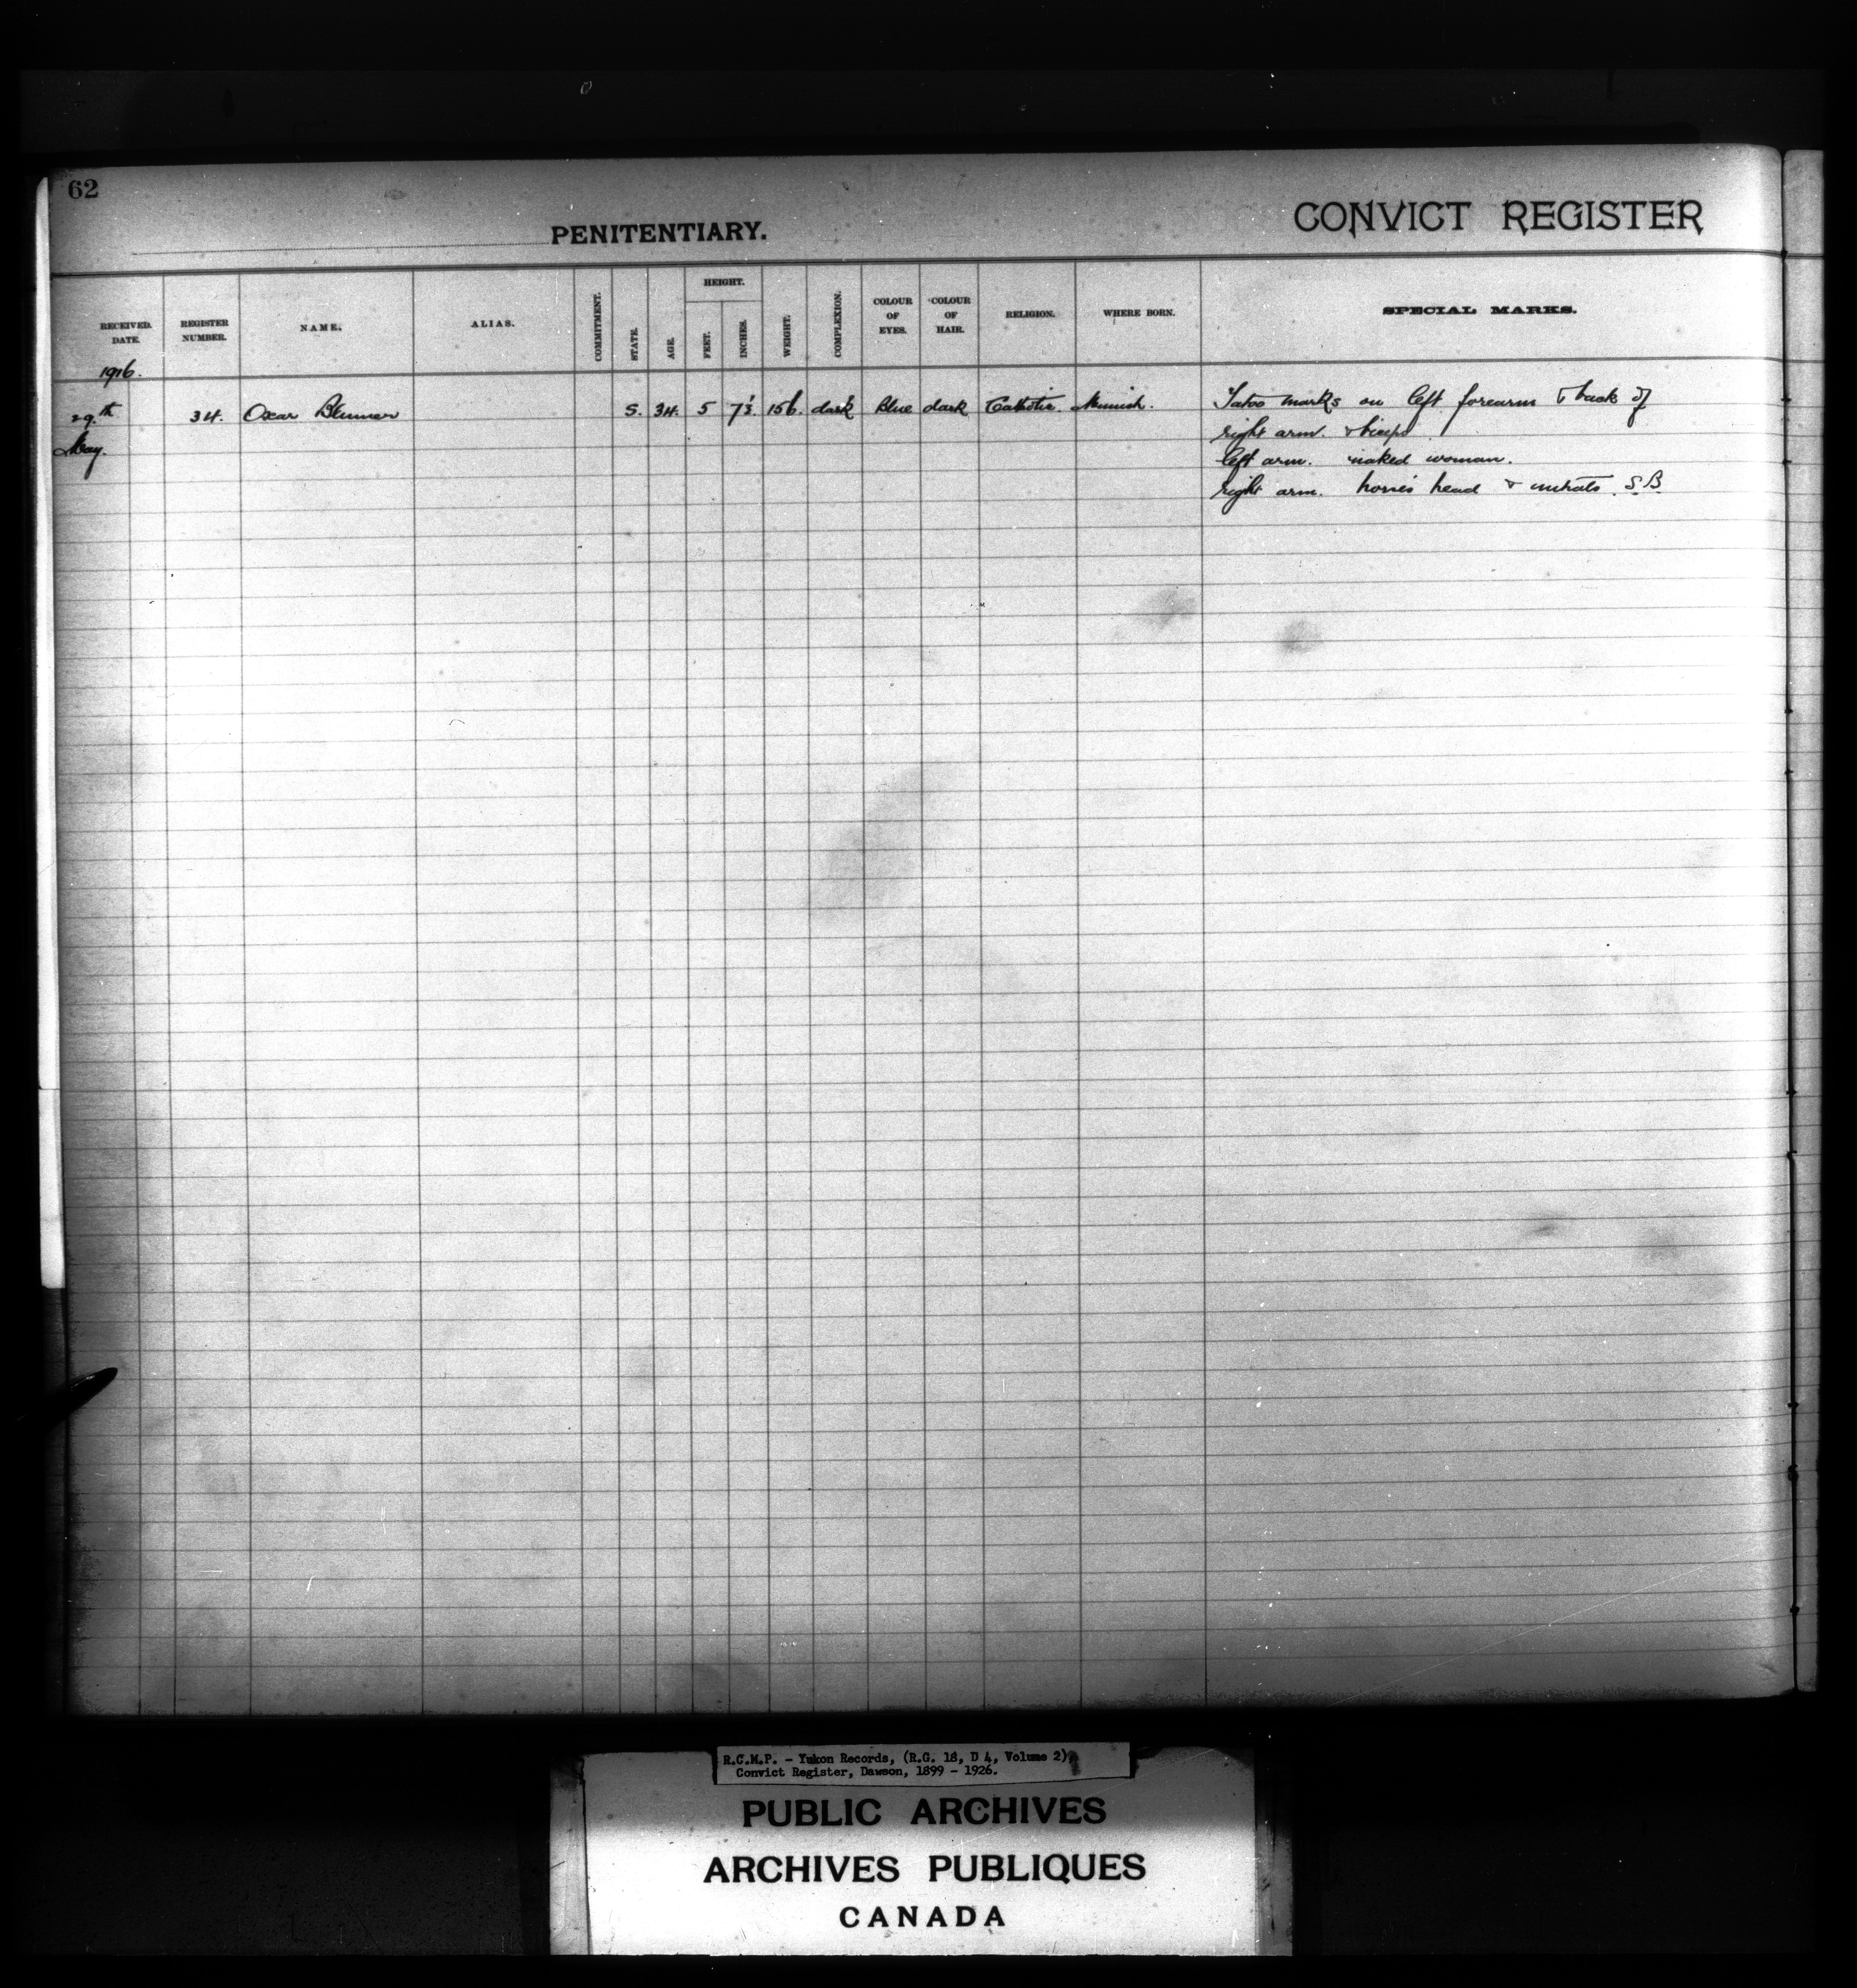 62
PENITENTIARY.
CONVICT REGISTER
RECEIVED. DATE.
REGISTER NUMBER.
NAME.
ALIAS.
COMMITMENT.
STATE.
AGE.
HEIGHT.
FEET.
INCHES.
WEIGHT.
COMPLEXION.
COLOUR OF EYES.
COLOUR OF HAIR.
RELIGION.
WHERE BORN.
SPECIAL MARKS.
1916.
29th May. 34. Oscar S. 34. 5 7½ 156. dark Blue dark Catholic. Munich. Tatoo marks on left forearm & back of
right arm. & biceps.
left arm. naked woman.
right arm. horse's head & initials. S.B.
R.C.M.P. - Yukon Records, (R.G. 18, D 4, Volume 2),
Convict Register, Dawson, 1899 - 1926.
PUBLIC ARCHIVES
ARCHIVES PUBLIQUES
CANADA